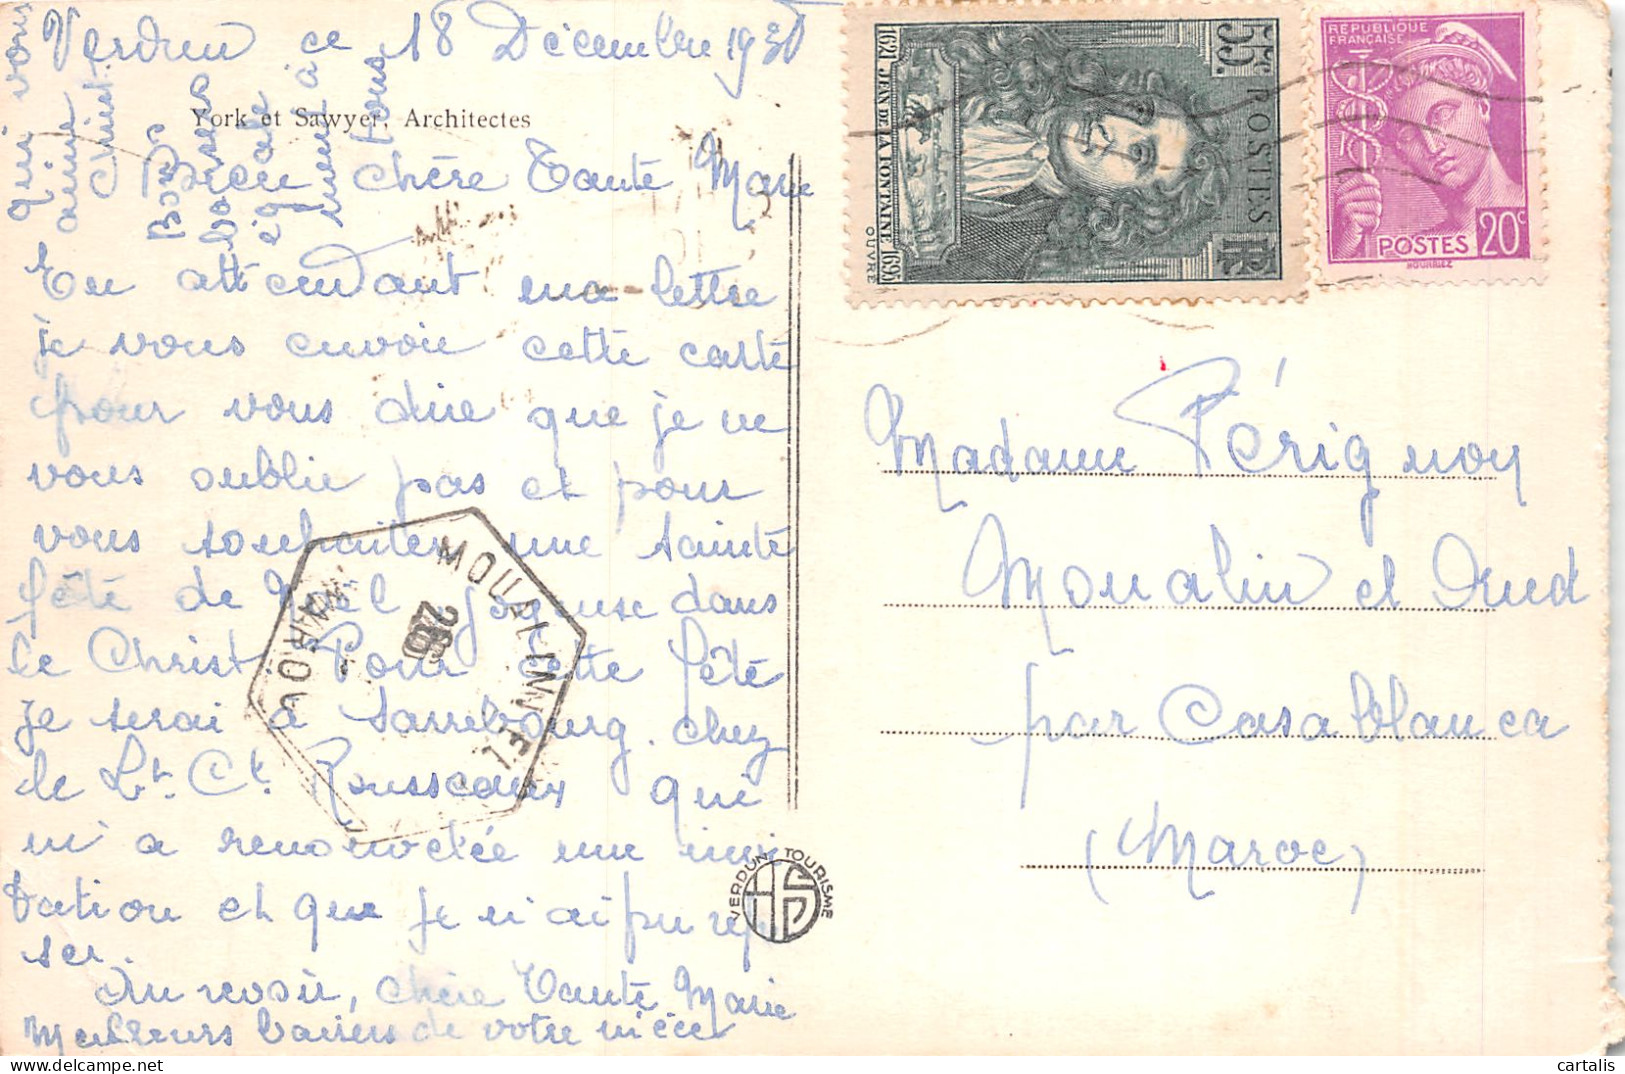 Verdun ce 18 Décembre 193
York et Sawyer, Architectes
Bien chère Tante Marie
En attendant ma lettre
je vous envoie cette carte
pour vous dire que je ne
vous oublie pas et pour
vous souhaiter une sainte
fête de Noël joyeuse dans
le Christ. Pour cette fête
je serai à Sarrebourg chez
le Lt. Ct. Rousseaux qui
m'a renouvelée une invi
tation et que je n'ai pu refu
ser.
Au revoir, chère Tante Marie
Meilleurs baisers de votre nièce
qui vous
aime
Christ.
Bons
baisers
égale
ment à
tous
MOUALINN EL
MAROC
26
VERDUN TOURISME
HS
55c POSTES RF
1621 JEAN DE LA FONTAINE 1695
OUVRÉ
RÉPUBLIQUE
FRANÇAISE
POSTES 20c
HOURRIEZ
Madame Pérignon
Moualin el Oued
par Casablanca
(Maroc)
cartalis